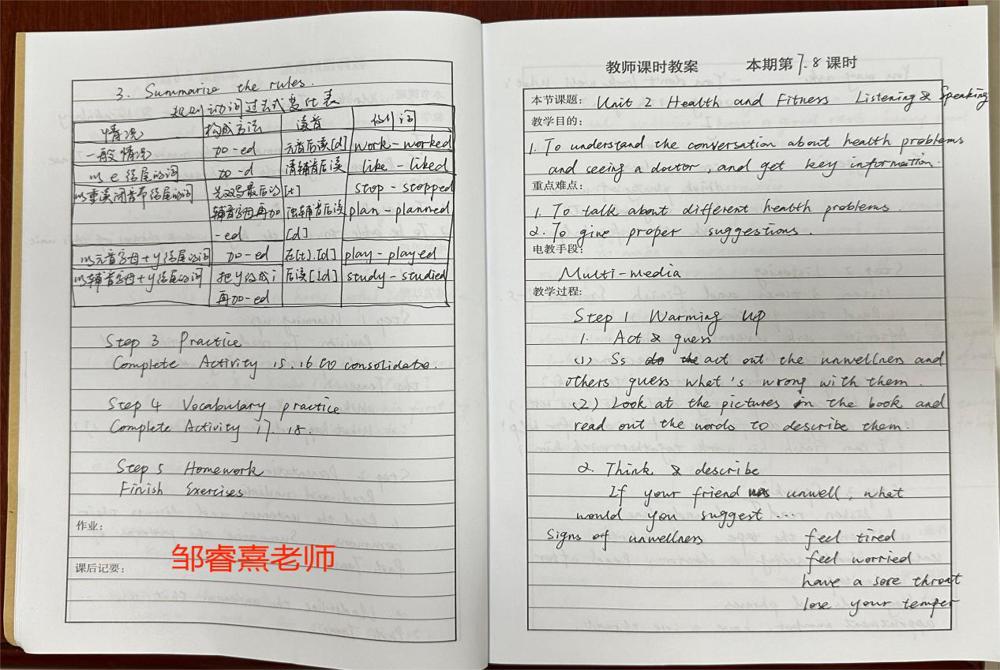 3. Summarize the rules.
规则动词过去式变化表
情况 构成方法 读音 例词
一般情况 加-ed 元音后读[d] work - worked
以e结尾的词 加-d 清辅音后读 like - liked
以重读闭音节结尾的词 先双写最后的 [t] stop - stopped
辅音字母再加 浊辅音后读 plan - planned
-ed [d]
以元音字母+y结尾的词 加-ed 在[t].[d] play - played
以辅音字母+y结尾的词 把y变成i 后读[id] study - studied
再加-ed
Step 3 Practice
Complete Activity 15. 16 to consolidate.
Step 4 Vocabulary practice
Complete Activity 17. 18.
Step 5 Homework
Finish Exercises
作业:
课后记要:
邹睿熹老师
教师课时教案 本期第7.8课时
本节课题: Unit 2 Health and Fitness Listening & Speaking
教学目的:
1. To understand the conversation about health problems
and seeing a doctor, and get key information.
重点难点:
1. To talk about different health problems.
2. To give proper suggestions.
电教手段:
Multi-media
教学过程:
Step 1 Warming up
1. Act & guess
(1) Ss act out the unwellness and
others guess what's wrong with them.
(2) Look at the pictures in the book and
read out the words to describe them.
2. Think & describe
If your friend unwell, what
would you suggest ...
Signs of unwellness feel tired
feel worried
have a sore throat
lose your temper